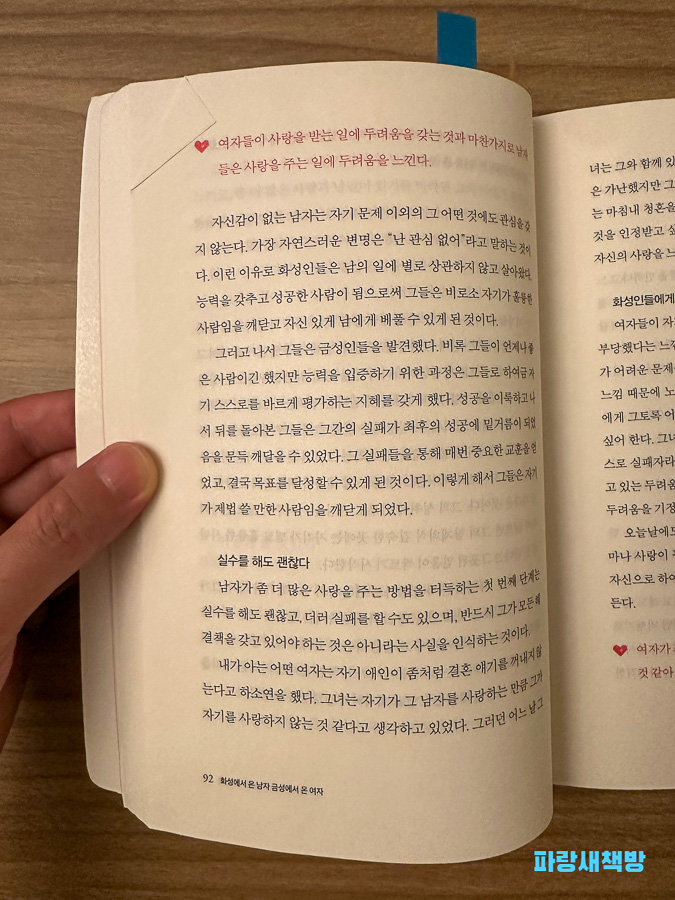 여자들이 사랑을 받는 일에 두려움을 갖는 것과 마찬가지로 남자
들은 사랑을 주는 일에 두려움을 느낀다.
자신감이 없는 남자는 자기 문제 이외의 그 어떤 것에도 관심을 갖
지 않는다. 가장 자연스러운 변명은 “난 관심 없어”라고 말하는 것이
다. 이런 이유로 화성인들은 남의 일에 별로 상관하지 않고 살아왔다.
능력을 갖추고 성공한 사람이 됨으로써 그들은 비로소 자기가 훌륭한
사람임을 깨닫고 자신 있게 남에게 베풀 수 있게 된 것이다.
그러고 나서 그들은 금성인들을 발견했다. 비록 그들이 언제나 좋
은 사람이긴 했지만 능력을 입증하기 위한 과정은 그들로 하여금 자
기 스스로를 바르게 평가하는 지혜를 갖게 했다. 성공을 이룩하고 나
서 뒤를 돌아본 그들은 그간의 실패가 최후의 성공에 밑거름이 되었
음을 문득 깨달을 수 있었다. 그 실패들을 통해 매번 중요한 교훈을 얻
었고, 결국 목표를 달성할 수 있게 된 것이다. 이렇게 해서 그들은 자기
가 제법 쓸 만한 사람임을 깨닫게 되었다.
실수를 해도 괜찮다
남자가 좀 더 많은 사랑을 주는 방법을 터득하는 첫 번째 단계는
실수를 해도 괜찮고, 더러 실패를 할 수도 있으며, 반드시 그가 모든 해
결책을 갖고 있어야 하는 것은 아니라는 사실을 인식하는 것이다.
내가 아는 어떤 여자는 자기 애인이 좀처럼 결혼 얘기를 꺼내지 않
는다고 하소연을 했다. 그녀는 자기가 그 남자를 사랑하는 만큼 그가
자기를 사랑하지 않는 것 같다고 생각하고 있었다. 그러던 어느 날 그
92 화성에서 온 남자 금성에서 온 여자
녀는 그와 함께 있
은 가난했지만 그
는 마침내 청혼을
것을 인정받고 싶
자신의 사랑을 느
화성인들에게
여자들이 자
부당했다는 느낌
가 어려운 문제
느낌 때문에 노
에게 그토록 어
싶어 한다. 그녀
스로 실패자라
고 있는 두려움
두려움을 가정
오늘날에도
마나 사랑이
자신으로 하여
든다.
여자가
것 같아
파랑새책방